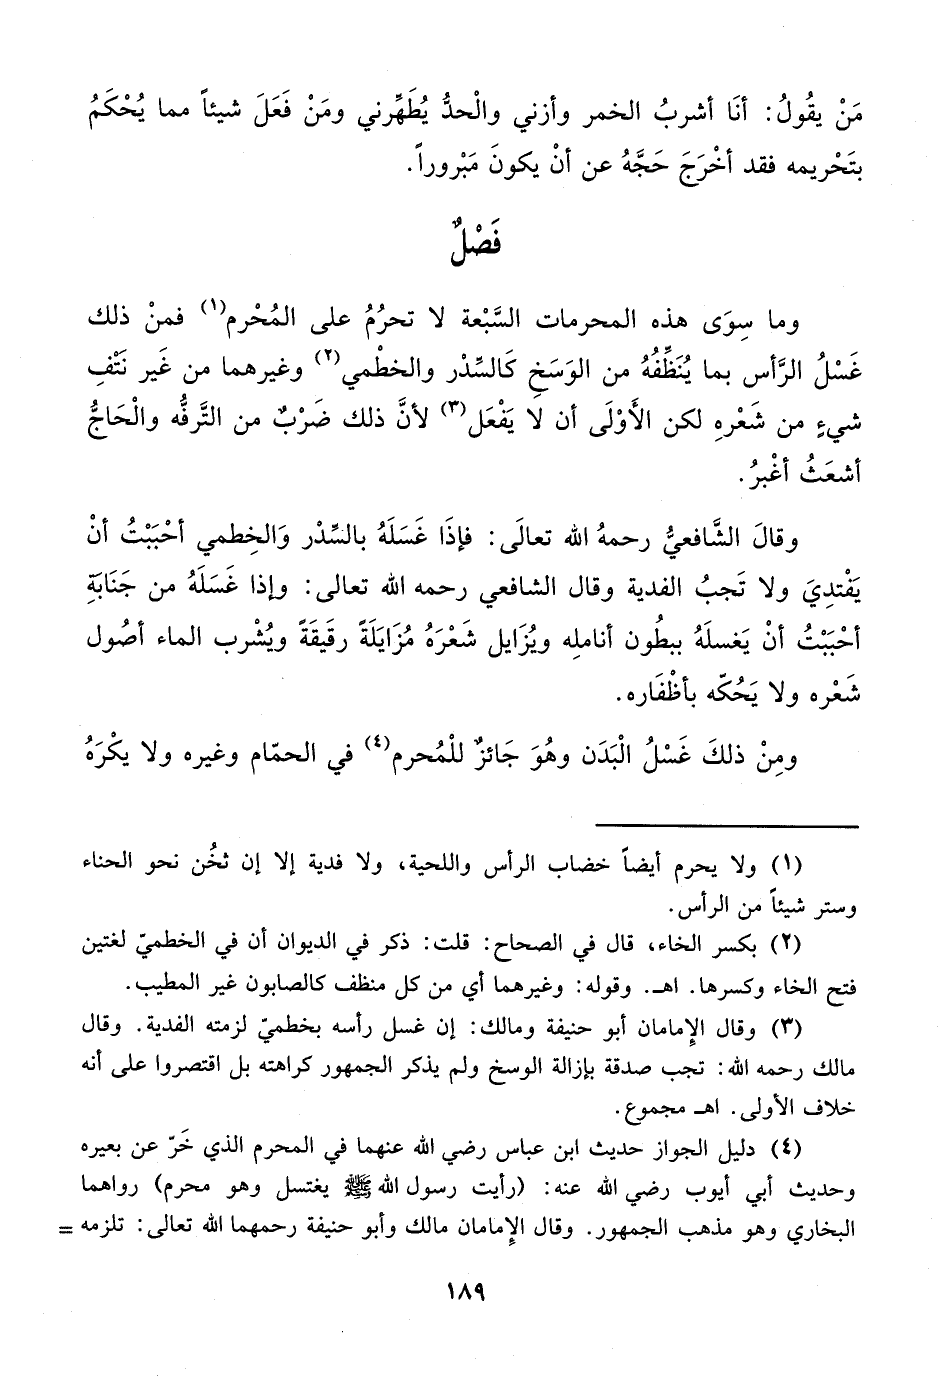 مَنْ يقُولُ: أنَا أشربُ الخمر وأزني والْحدُّ يُطَهِّرني ومَنْ فَعَلَ شيئاً مما يُحْكَمُ
بتَحْريمه فقد أخْرَجَ حَجَّهُ عن أنْ يكونَ مَبْروراً.
فَصْلٌ
وما سِوَى هذه المحرمات السَّبْعة لا تحرُمُ على المُحْرم(١) فمنْ ذلك
غَسْلُ الرَّأس بما يُنَظِّفُهُ من الوَسَخِ كَالسِّدْر والخطْمي(٢) وغيرهما من غَير نَتْفِ
شيءٍ من شَعْرهِ لكن الأَوْلَى أن لا يَفْعَل(٣) لأنَّ ذلك ضَرْبٌ من التَّرفُّه والْحَاجُّ
أشعَثُ أغْبرُ.
وقالَ الشَّافعيُّ رحمهُ الله تعالَى: فإذَا غَسَلَهُ بالسِّدْر وَالخِطمي أحْبَبْتُ أنْ
يَفْتدِيَ ولا تَجبُ الفدية وقال الشافعي رحمه الله تعالى: وإذا غَسَلَهُ من جَنَابَةِ
أحْبَبْتُ أنْ يَغسلَهُ ببطُون أناملِه ويُزَايل شَعْرَهُ مُزَايَلَةً رقيقَةً ويُشْرب الماء أصُول
شَعْره ولا يَحُكّه بأظْفَاره.
ومِنْ ذلكَ غَسْلُ الْبَدَن وهُوَ جَائزٌ للْمُحرم(٤) في الحمّام وغيره ولا يكْرَهُ
(١) ولا يحرم أيضاً خضاب الرأس واللحية، ولا فدية إلا إن ثخُن نحو الحناء
وستر شيئاً من الرأس.
(٢) بكسر الخاء، قال في الصحاح: قلت: ذكر في الديوان أن في الخطميّ لغتين
فتح الخاء وكسرها. اهـ. وقوله: وغيرهما أي من كل منظف كالصابون غير المطيب.
(٣) وقال الإمامان أبو حنيفة ومالك: إن غسل رأسه بخطميّ لزمته الفدية. وقال
مالك رحمه الله: تجب صدقة بإزالة الوسخ ولم يذكر الجمهور كراهته بل اقتصروا على أنه
خلاف الأولى. اهـ مجموع.
(٤) دليل الجواز حديث ابن عباس رضي الله عنهما في المحرم الذي خَرّ عن بعيره
وحديث أبي أيوب رضي الله عنه: (رأيت رسول الله ﷺ يغتسل وهو محرم) رواهما
البخاري وهو مذهب الجمهور. وقال الإمامان مالك وأبو حنيفة رحمهما الله تعالى: تلزمه =
١٨٩